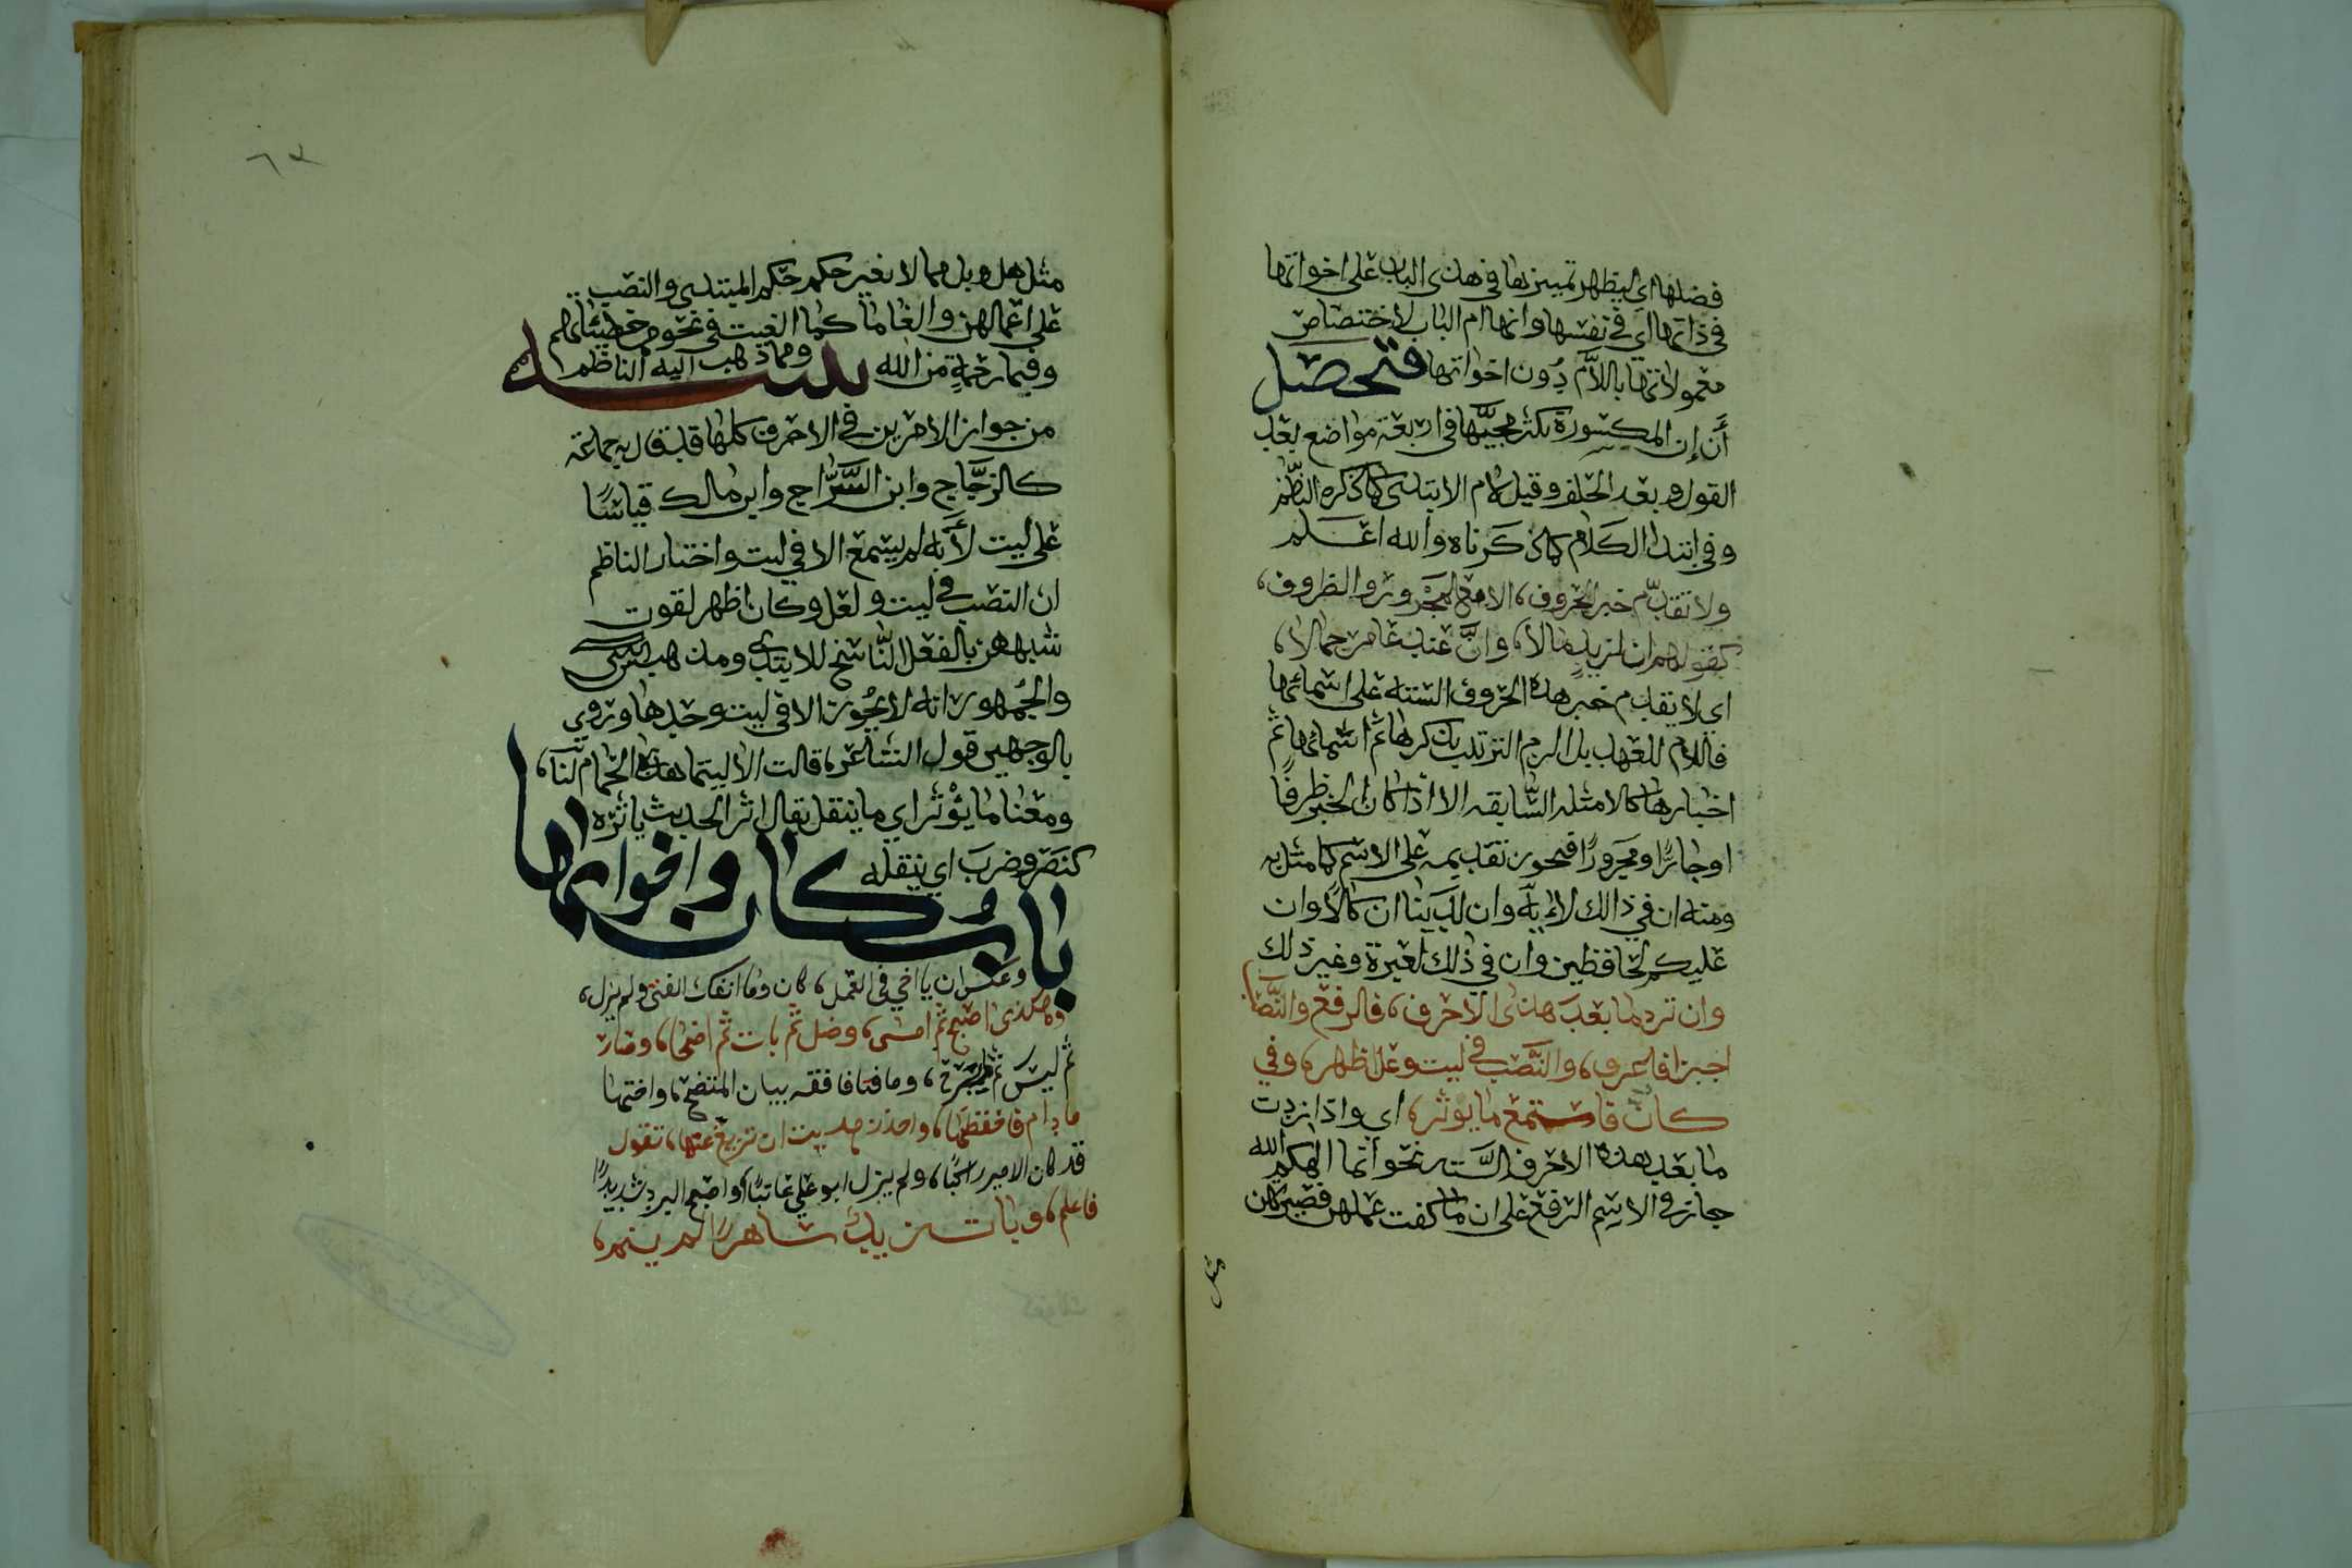 فضلها اي ليظهر تمييزها في هذى الباب على اخواتها
في ذاتها اي في نفسها وانها ام الباب لاختصاص
معمولاتها باللام دون اخواتها فتحصل
أن إن المكسورة يكثر مجيّها في اربعة مواضع بعد
القول وبعد الحلف وقيل لام الابتدى كما ذكره النظم
وفي ابتدا الكلام كما ذكرناه والله اعلم
ولا تقدّم خبر الحروف، الا مع المجرور والظروف،
كقولهم ان لزيد مالا، وانّ عند عامر جمالا،
اي لا يقدم خبر هذه الحروف الستة على اسمائها
فاللام للعهد بل الزم الترتيب بذكرها ثم اسمائها ثم
اخبارها كالامثله السابقه الا اذا كان الخبر ظرفًا
او جارًا ومجرورًا فيجوز تقديمه على الاسم كما مثل به
ومنه ان في ذالك لاية وان لدينا انكالًا وان
عليكم لحافظين وان في ذلك لعبرة وغير ذلك
وان ترد ما بعد هذى الاحرف، فالرفع والنصب
اجيزا فاعرف، والنّصب في ليت وعل اظهر، وفي
كانّ فاستمع ما يوثر، اي واذا زدت
ما بعد هذه الاحرف الستة نحو انما الهكم الله
جاز في الاسم الرفع على ان ما كفت عملهن فصيرتهن
مثل
٦٣
مثل هل وبل مما لا يغير حكم حكم المبتدى والنصب
على اعمالهن والغا ما كما الغيت في نحو مما خطيئاتهم
وفبما رحمةٍ من الله تنبيه وما ذهب اليه الناظم
من جواز الامرين في الاحرف كلها قد قال به جماعة
كالزجّاج وابن السّرّاج وابن مالك قياسًا
على ليت لأنه لم يسمع الا في ليت واختار الناظم
ان النصب في ليت ولعل وكان اظهر لقوت
شبههن بالفعل النّاسخ للابتدى ومذهب
والجمهور انه لا يجوز الا في ليت وحدها وروي
بالوجهين قول الشاعر، قالت الا ليتما هذا الحمام لنا،
ومعنا ما يؤثر اي ما ينقل يقال اثر الحديث ياثره
كنصر وضرب اي ينقله
باب كان واخواتها
وعكس ان يا اخي في العمل، كان وما انفك الفتى ولم يزل،
وهكذى اصبح ثم امسى، وضل ثم بات ثم اضحا، وصار
ثم ليس ثم ما برح، وما فتا فافقه بيان المتضح، واختها
ما دام فاحفظنها، واحذر هديت ان تزيغ عنها، تقول
قد كان الامير راكبًا، ولم يزل ابو علي عاتبًا، واصبح البرد شديدًا
فاعلم، وبات زيد ساهرًا لم ينم،